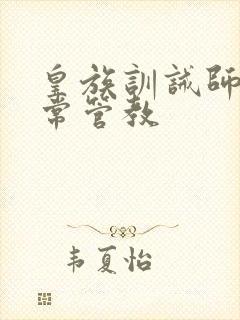 皇族訓誡師
常管教
韦夏怡